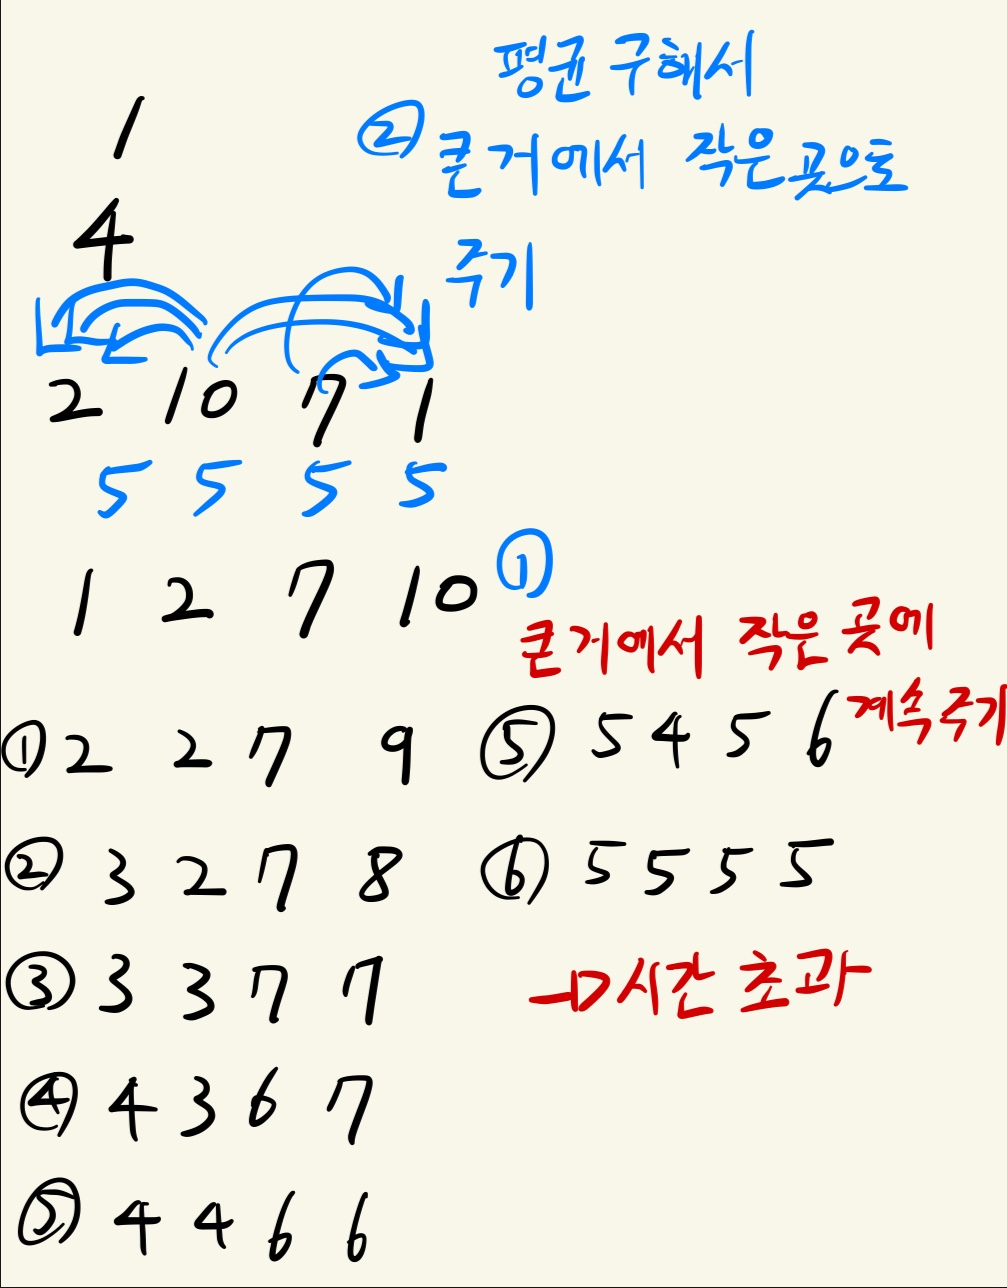 1
평균 구해서
② 큰 거에서 작은곳으로
4
주기
2 10 7 1
5 5 5 5
1 2 7 10
①
큰 거에서 작은 곳에
계속 주기
① 2 2 7 9
② 3 2 7 8
③ 3 3 7 7
④ 4 3 6 7
⑤ 4 4 6 6
⑤ 5 4 5 6
⑥ 5 5 5 5
→ 시간 초과